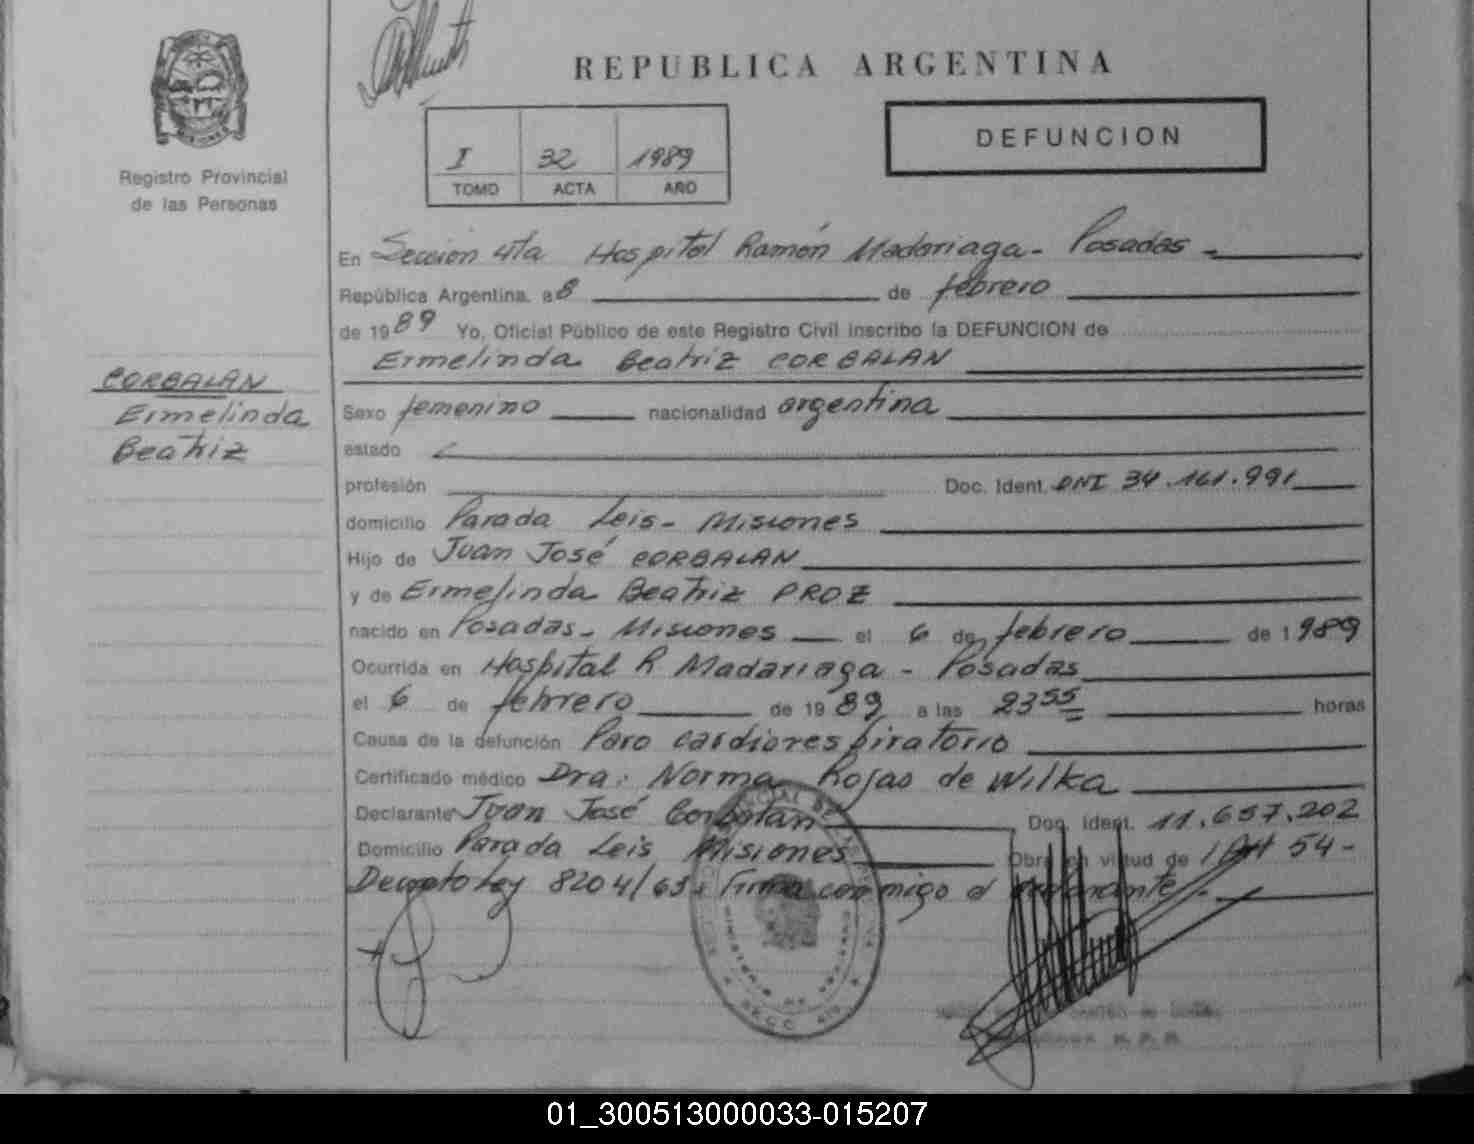 REPUBLICA ARGENTINA
DEFUNCION
I 32 1989
TOMO ACTA AÑO
Registro Provincial
de las Personas
En Sección 4ta Hospital Ramón Madariaga - Posadas -
República Argentina, a 8 de febrero
de 1989 Yo, Oficial Público de este Registro Civil inscribo la DEFUNCION de
Ermelinda Beatriz CORBALAN
CORBALAN
Ermelinda
Beatriz
Sexo femenino nacionalidad argentina
estado
profesión Doc. Ident. DNI 34.161.991
domicilio Parada Leis - Misiones
Hijo de Juan José CORBALAN
y de Ermelinda Beatriz PROZ
nacido en Posadas - Misiones el 6 de febrero de 1989
Ocurrida en Hospital R Madariaga - Posadas
el 6 de febrero de 1989 a las 23 55 horas
Causa de la defunción Paro cardiorespiratorio
Certificado médico Dra. Norma Rojas de Wilka
Declarante Juan José Corbalan Doc. ident. 11.657.202
Domicilio Parada Leis Misiones Obra en virtud de Art 54 -
Decreto Ley 8204/63. Firma conmigo el declarante -
01_300513000033-015207